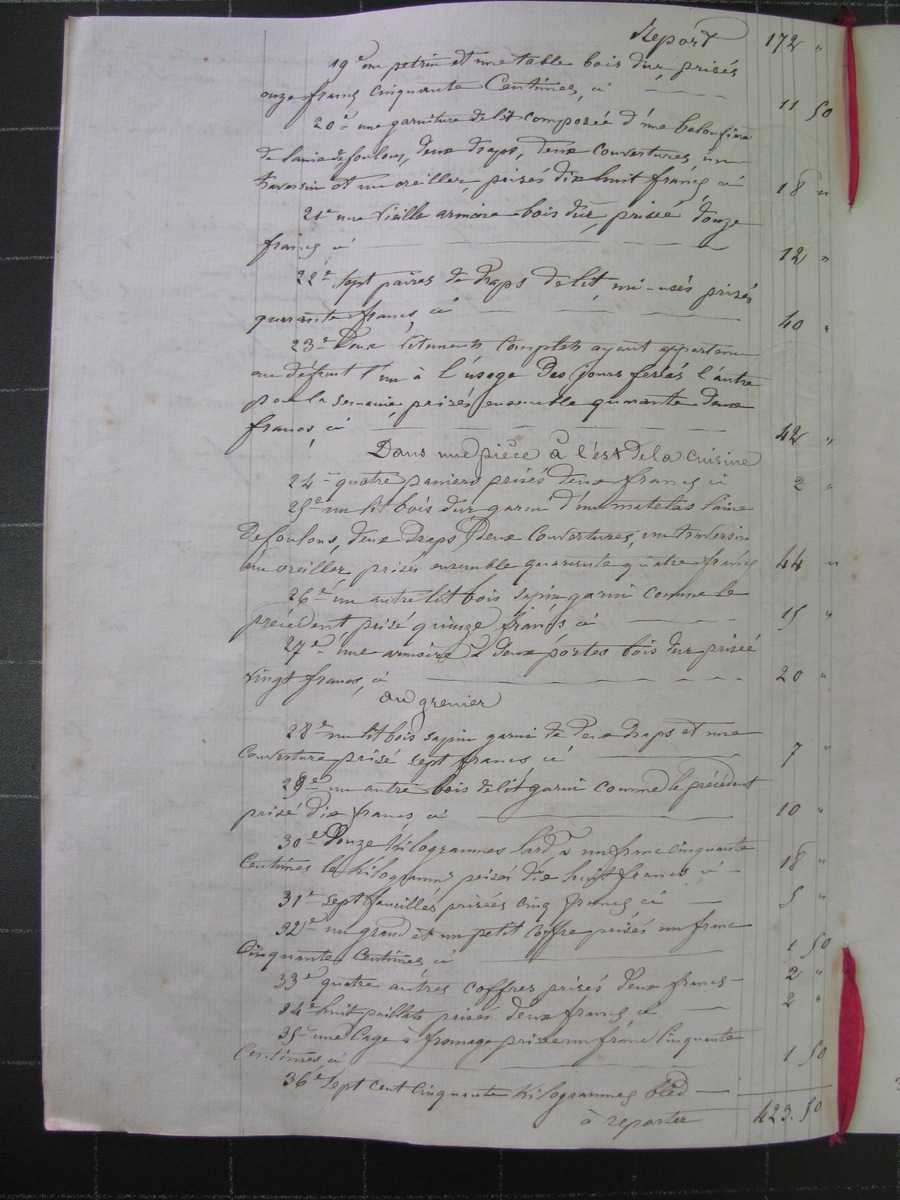 Report 172 "
19e un petrin et une table bois dur, prisés
onze francs cinquante Centimes, ci 11 50
20e une garniture de lit composée d'une
de laine de foulons, deux draps, deux couvertures, un
traversin et un oreiller, prisés dix huit francs ci 18 "
21e une vieille armoire bois dur, prisée douze
francs ci 12 "
22e Sept paires de draps de lit, mi-usés prisés
quarante francs, ci 40 "
23e Deux vêtements complets ayant appartenu
au défunt l'un à l'usage des jours feriés l'autre
pour la semaine, prisés ensemble quarante deux
francs, ci 42 "
Dans une pièce à l'est de la cuisine
24e quatre paniers prisés deux francs ci 2 "
25e un lit bois dur garni d'un matelas laine
de foulons, deux draps, deux couvertures, un traversin
un oreiller, prisés ensemble quarante quatre francs 44 "
26e un autre lit bois sapin garni comme le
précédent prisé quinze francs ci 15 "
27e une armoire à deux portes bois dur prisée
vingt francs, ci 20 "
au grenier
28e un lit bois sapin garni de deux draps et une
couverture prisé sept francs ci 7 "
29e un autre bois de lit garni comme le précédent
prisé dix francs, ci 10 "
30e Douze kilogrammes lard à un franc cinquante
Centimes le kilogramme prisés dix huit francs, ci 18 "
31e sept faucilles prisées cinq francs ci 5 "
32e un grand et un petit coffre prisés un franc
cinquante Centimes ci 1 50
33e quatre autres coffres prisés deux francs 2 "
34e huit prisés deux francs ci 2 "
35e une Cage à fromage prisée un franc cinquante
Centimes ci 1 50
36e Sept cent cinquante kilogrammes bled
à reporter 423.50